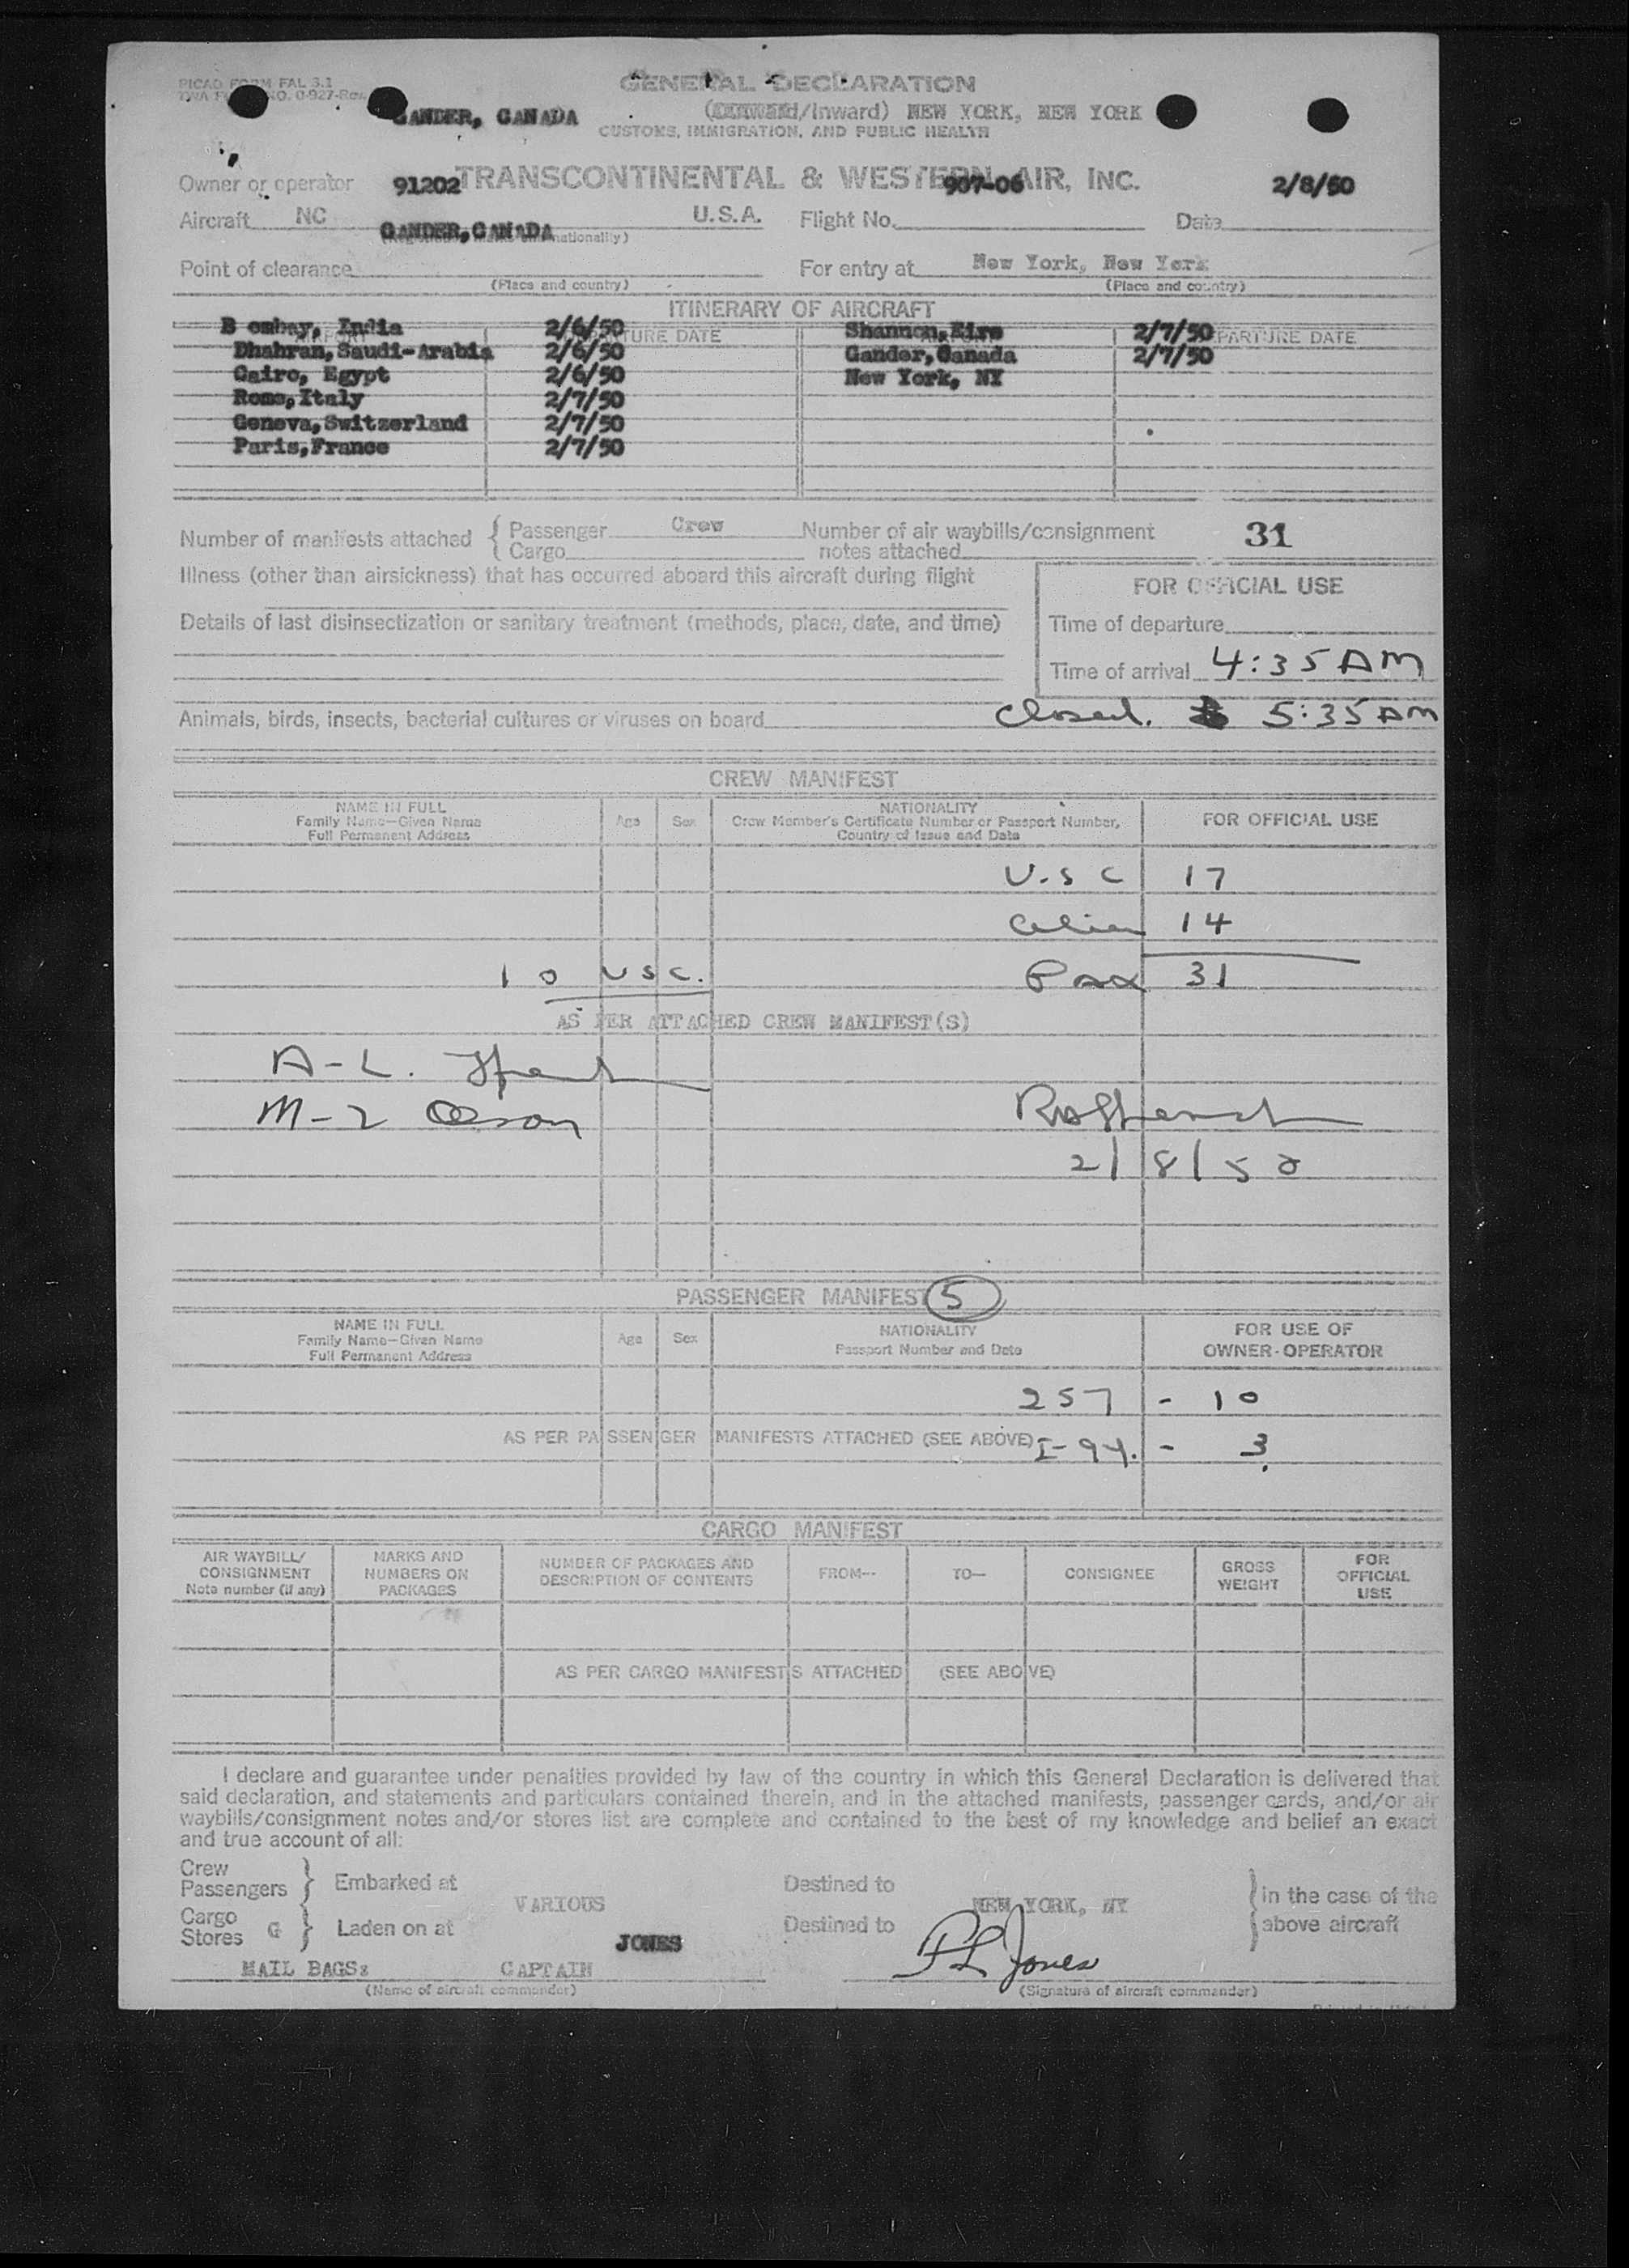 PICAO FORM FAL 3.1
GENERAL DECLARATION
TWA NO. 0-927-Rev.
GANDER, CANADA (/Inward) NEW YORK, NEW YORK
CUSTOMS, IMMIGRATION, AND PUBLIC HEALTH
Owner or operator 91202 TRANSCONTINENTAL & WESTERN AIR, INC. 907-06 2/8/50
Aircraft NC U.S.A. Flight No. Date
GANDER,CANADA nationality)
Point of clearance For entry at New York, New York
(Place and country) (Place and country)
ITINERARY OF AIRCRAFT
AIRPORT DEPARTURE DATE DEPARTURE DATE
B ombay, India 2/6/50 Shannon,Eire 2/7/50
Dhahran,Saudi-Arabia 2/6/50 Gander,Canada 2/7/50
Cairo, Egypt 2/6/50 New York, NY
Rome,Italy 2/7/50
Geneva,Switzerland 2/7/50
Paris,France 2/7/50
Number of manifests attached { Passenger Crew Number of air waybills/consignment 31
Cargo notes attached
Illness (other than airsickness) that has occurred aboard this aircraft during flight
FOR OFFICIAL USE
Details of last disinsectization or sanitary treatment (methods, place, date, and time)
Time of departure
Time of arrival 4:35 AM
Animals, birds, insects, bacterial cultures or viruses on board Closed. 5:35 AM
CREW MANIFEST
NAME IN FULL
Family Name—Given Name
Full Permanent Address
Age Sex
NATIONALITY
Crew Member's Certificate Number or Passport Number,
Country of Issue and Date
FOR OFFICIAL USE
U.S C 17
Alien 14
10 USC. Pax 31
AS PER ATTACHED CREW MANIFEST(S)
A-L.
M-2 Olson
2/8/50
PASSENGER MANIFEST 5
NAME IN FULL
Family Name—Given Name
Full Permanent Address
Age Sex
NATIONALITY
Passport Number and Date
FOR USE OF
OWNER-OPERATOR
257 - 10
AS PER PASSENGER MANIFESTS ATTACHED (SEE ABOVE) I-94. - 3
CARGO MANIFEST
AIR WAYBILL/
CONSIGNMENT
Note number (if any)
MARKS AND
NUMBERS ON
PACKAGES
NUMBER OF PACKAGES AND
DESCRIPTION OF CONTENTS
FROM—
TO—
CONSIGNEE
GROSS
WEIGHT
FOR
OFFICIAL
USE
AS PER CARGO MANIFESTS ATTACHED (SEE ABOVE)
I declare and guarantee under penalties provided by law of the country in which this General Declaration is delivered that
said declaration, and statements and particulars contained therein, and in the attached manifests, passenger cards, and/or air
waybills/consignment notes and/or stores list are complete and contained to the best of my knowledge and belief an exact
and true account of all:
Crew
Passengers } Embarked at VARIOUS Destined to NEW YORK, NY } in the case of the
Cargo
Stores G } Laden on at Destined to above aircraft
JONES
MAIL BAGS: CAPTAIN PL Jones
(Name of aircraft commander) (Signature of aircraft commander)